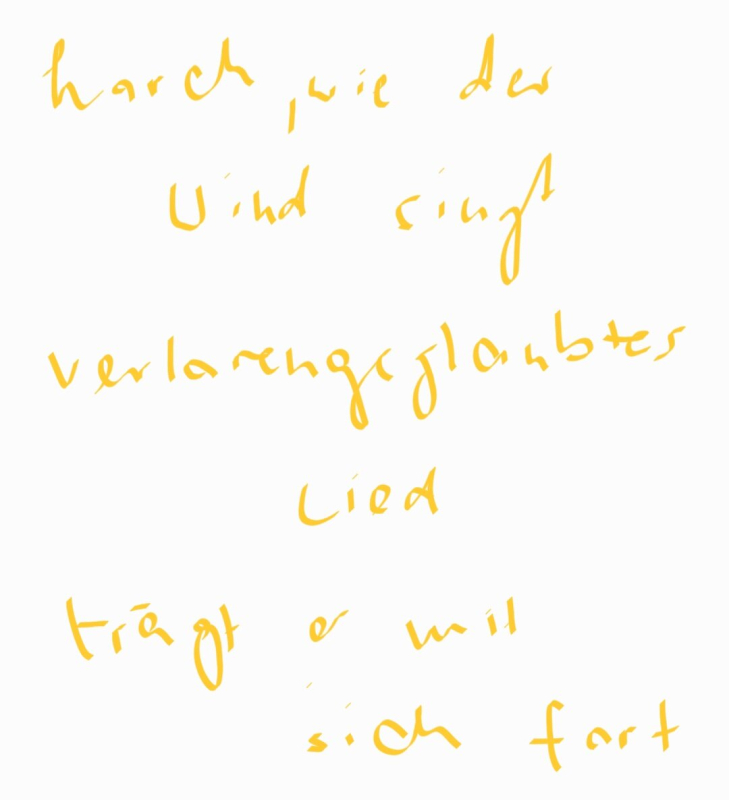 horch, wie der
Wind singt
verlorengeglaubtes
Lied
trägt er mit
sich fort